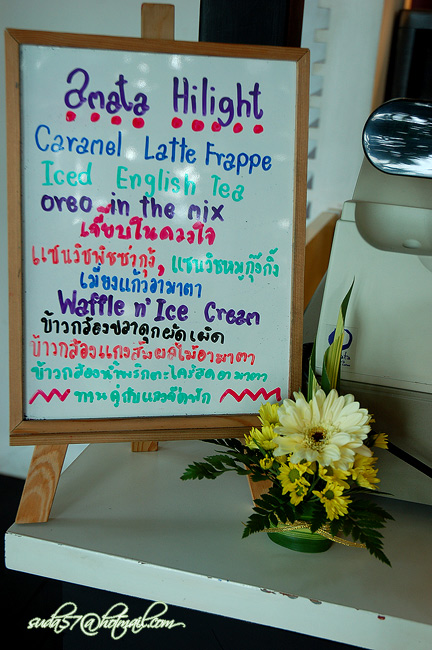 amata Hilight
Caramel Latte Frappe
Iced English Tea
oreo in the mix
เจี๊ยบในดวงใจ
แซนวิชพิซซ่ากุ้ง, แซนวิชหมูกุ๊งกิ๊ง
เมี่ยงแก้วอามาตา
Waffle n' Ice Cream
ข้าวกล้องปลาดุกผัดเผ็ด
ข้าวกล้องแกงส้มผลไม้อามาตา
ข้าวกล้องน้ำพริกตะไคร้สดอามาตา
ทานคู่กับแกงจืดผัก
suda57@hotmail.com